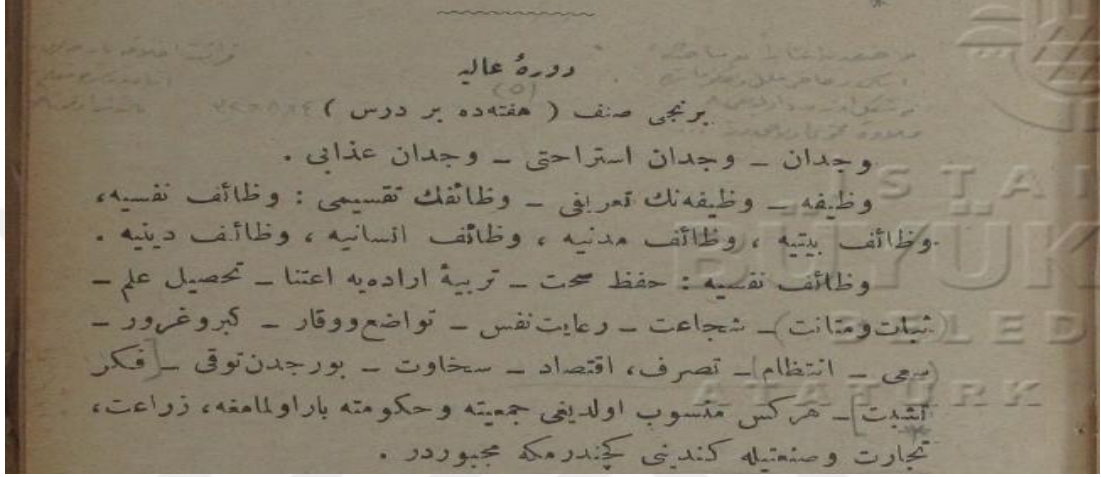 دورهٔ عالیه
(٥)
برنجی صنف ( هفته‌ده بر درس )
وجدان ــ وجدان استراحتی ــ وجدان عذابی .
وظیفه ــ وظیفه‌نك تعریفی ــ وظائفك تقسیمی : وظائف نفسیه،
وظائف بیتیه ، وظائف مدنیه ، وظائف انسانیه ، وظائف دینیه .
وظائف نفسیه : حفظ صحت ــ تربیهٔ اراده‌یه اعتنا ــ تحصیل علم ــ
(ثبات ومتانت) ــ شجاعت ــ رعایت نفس ــ تواضع ووقار ــ کبر وغرور ــ
(سعی ــ انتظام) ــ تصرف، اقتصاد ــ سخاوت ــ بورجدن توقی ــ [فکر
تشبث] ــ هرکس منسوب اولدیغی جمعیته وحکومته بار اولمامغه، زراعت،
تجارت وصنعتیله کندینی کچندرمکه مجبوردر .
ISTAN
BÜYÜK
BELED
ATATÜRK